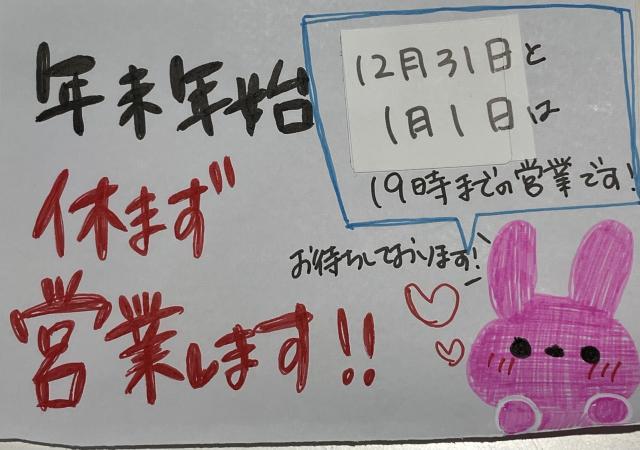 年末年始
休まず
営業します!!
12月31日と
1月1日は
19時までの営業です!
お待ちしております!